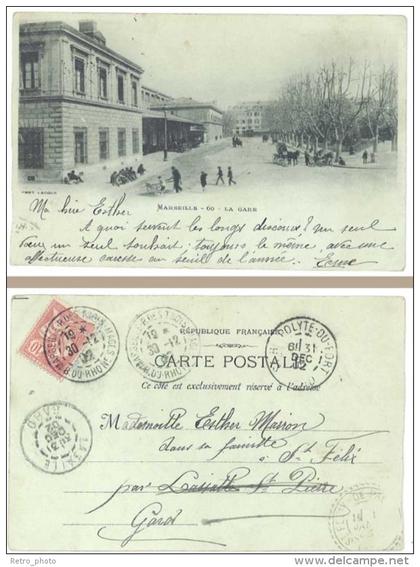 MARSEILLE - 60 - LA GARE
Ma chère Esther
A quoi servent les longs discours? un seul
vœu un seul souhait; toujours le même, avec une
affectueuse caresse au seuil de l'année.
RÉPUBLIQUE FRANÇAISE
CARTE POSTALE
Ce côté est exclusivement réservé à l'adresse
HIPPOLYTE-DU-FORT
31
DEC
02
19 *
30 -12
02
B-DU-RHONE
19 *
30 -12
B-DU-RHONE
LASALLE
GARD
Mademoiselle Esther Masson
dans sa famille
à St Félix
par Lasalle St Pierre
Gard
Retro_photo
www.delcampe.net